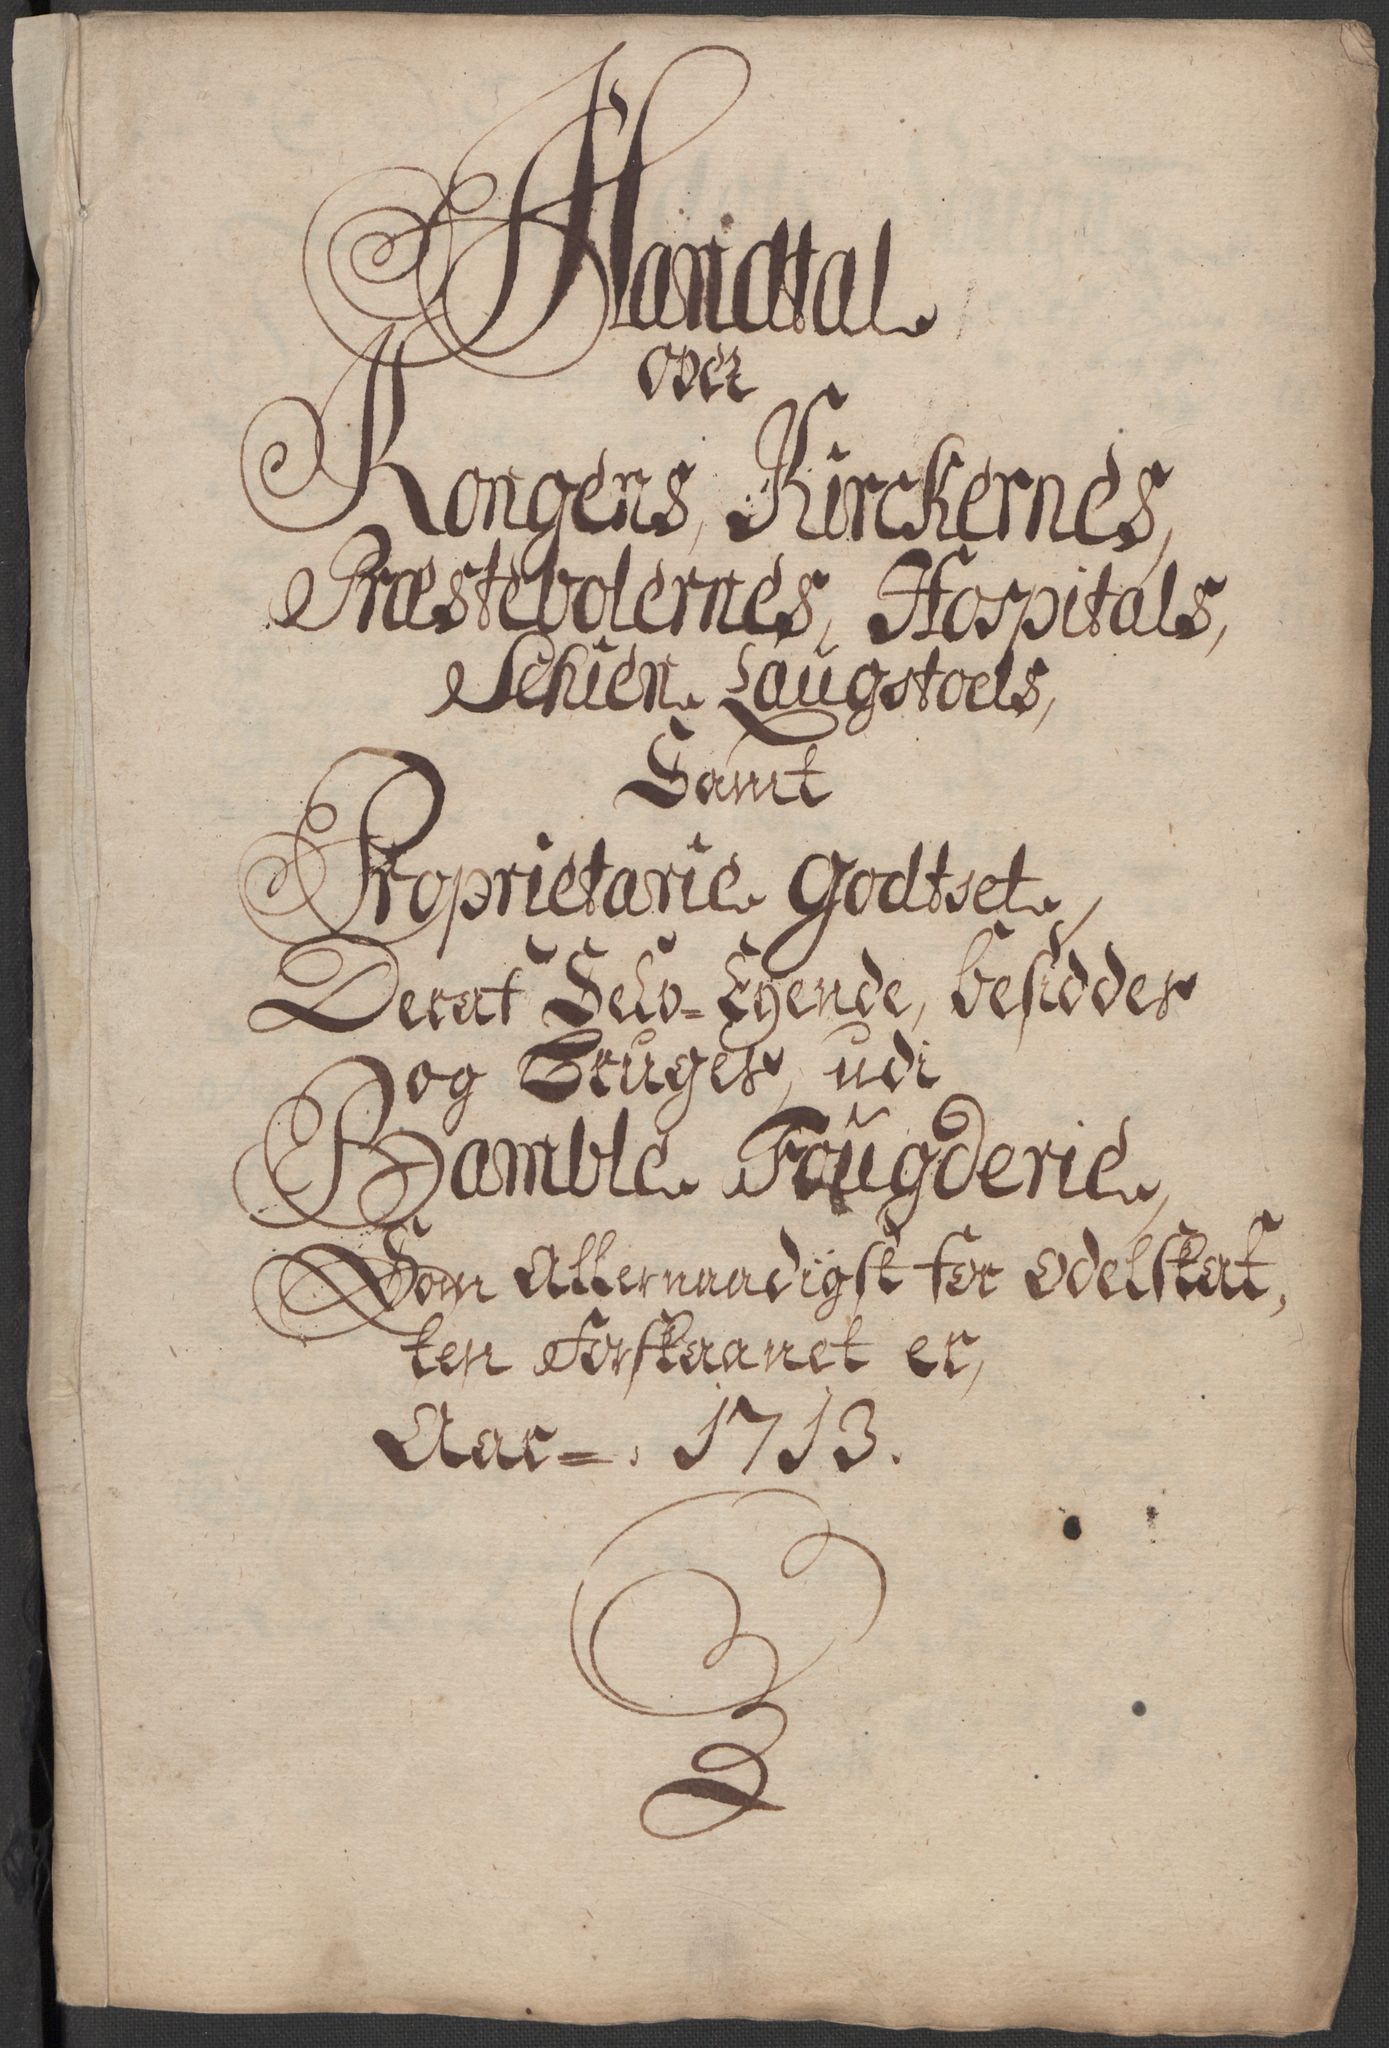 Mandtal
over
Kongens, Kirckernes,
Præstebolernes, Hospitals,
Schien Laugstoels,
Samt
Proprietarie Godtset,
Derat Selv-Eyende, besidder
og Bruger, udi
Bamble Fougderie,
Som Allernaadigst for Odelskat,
ten Forskaanet er,
Aar=. 1713.